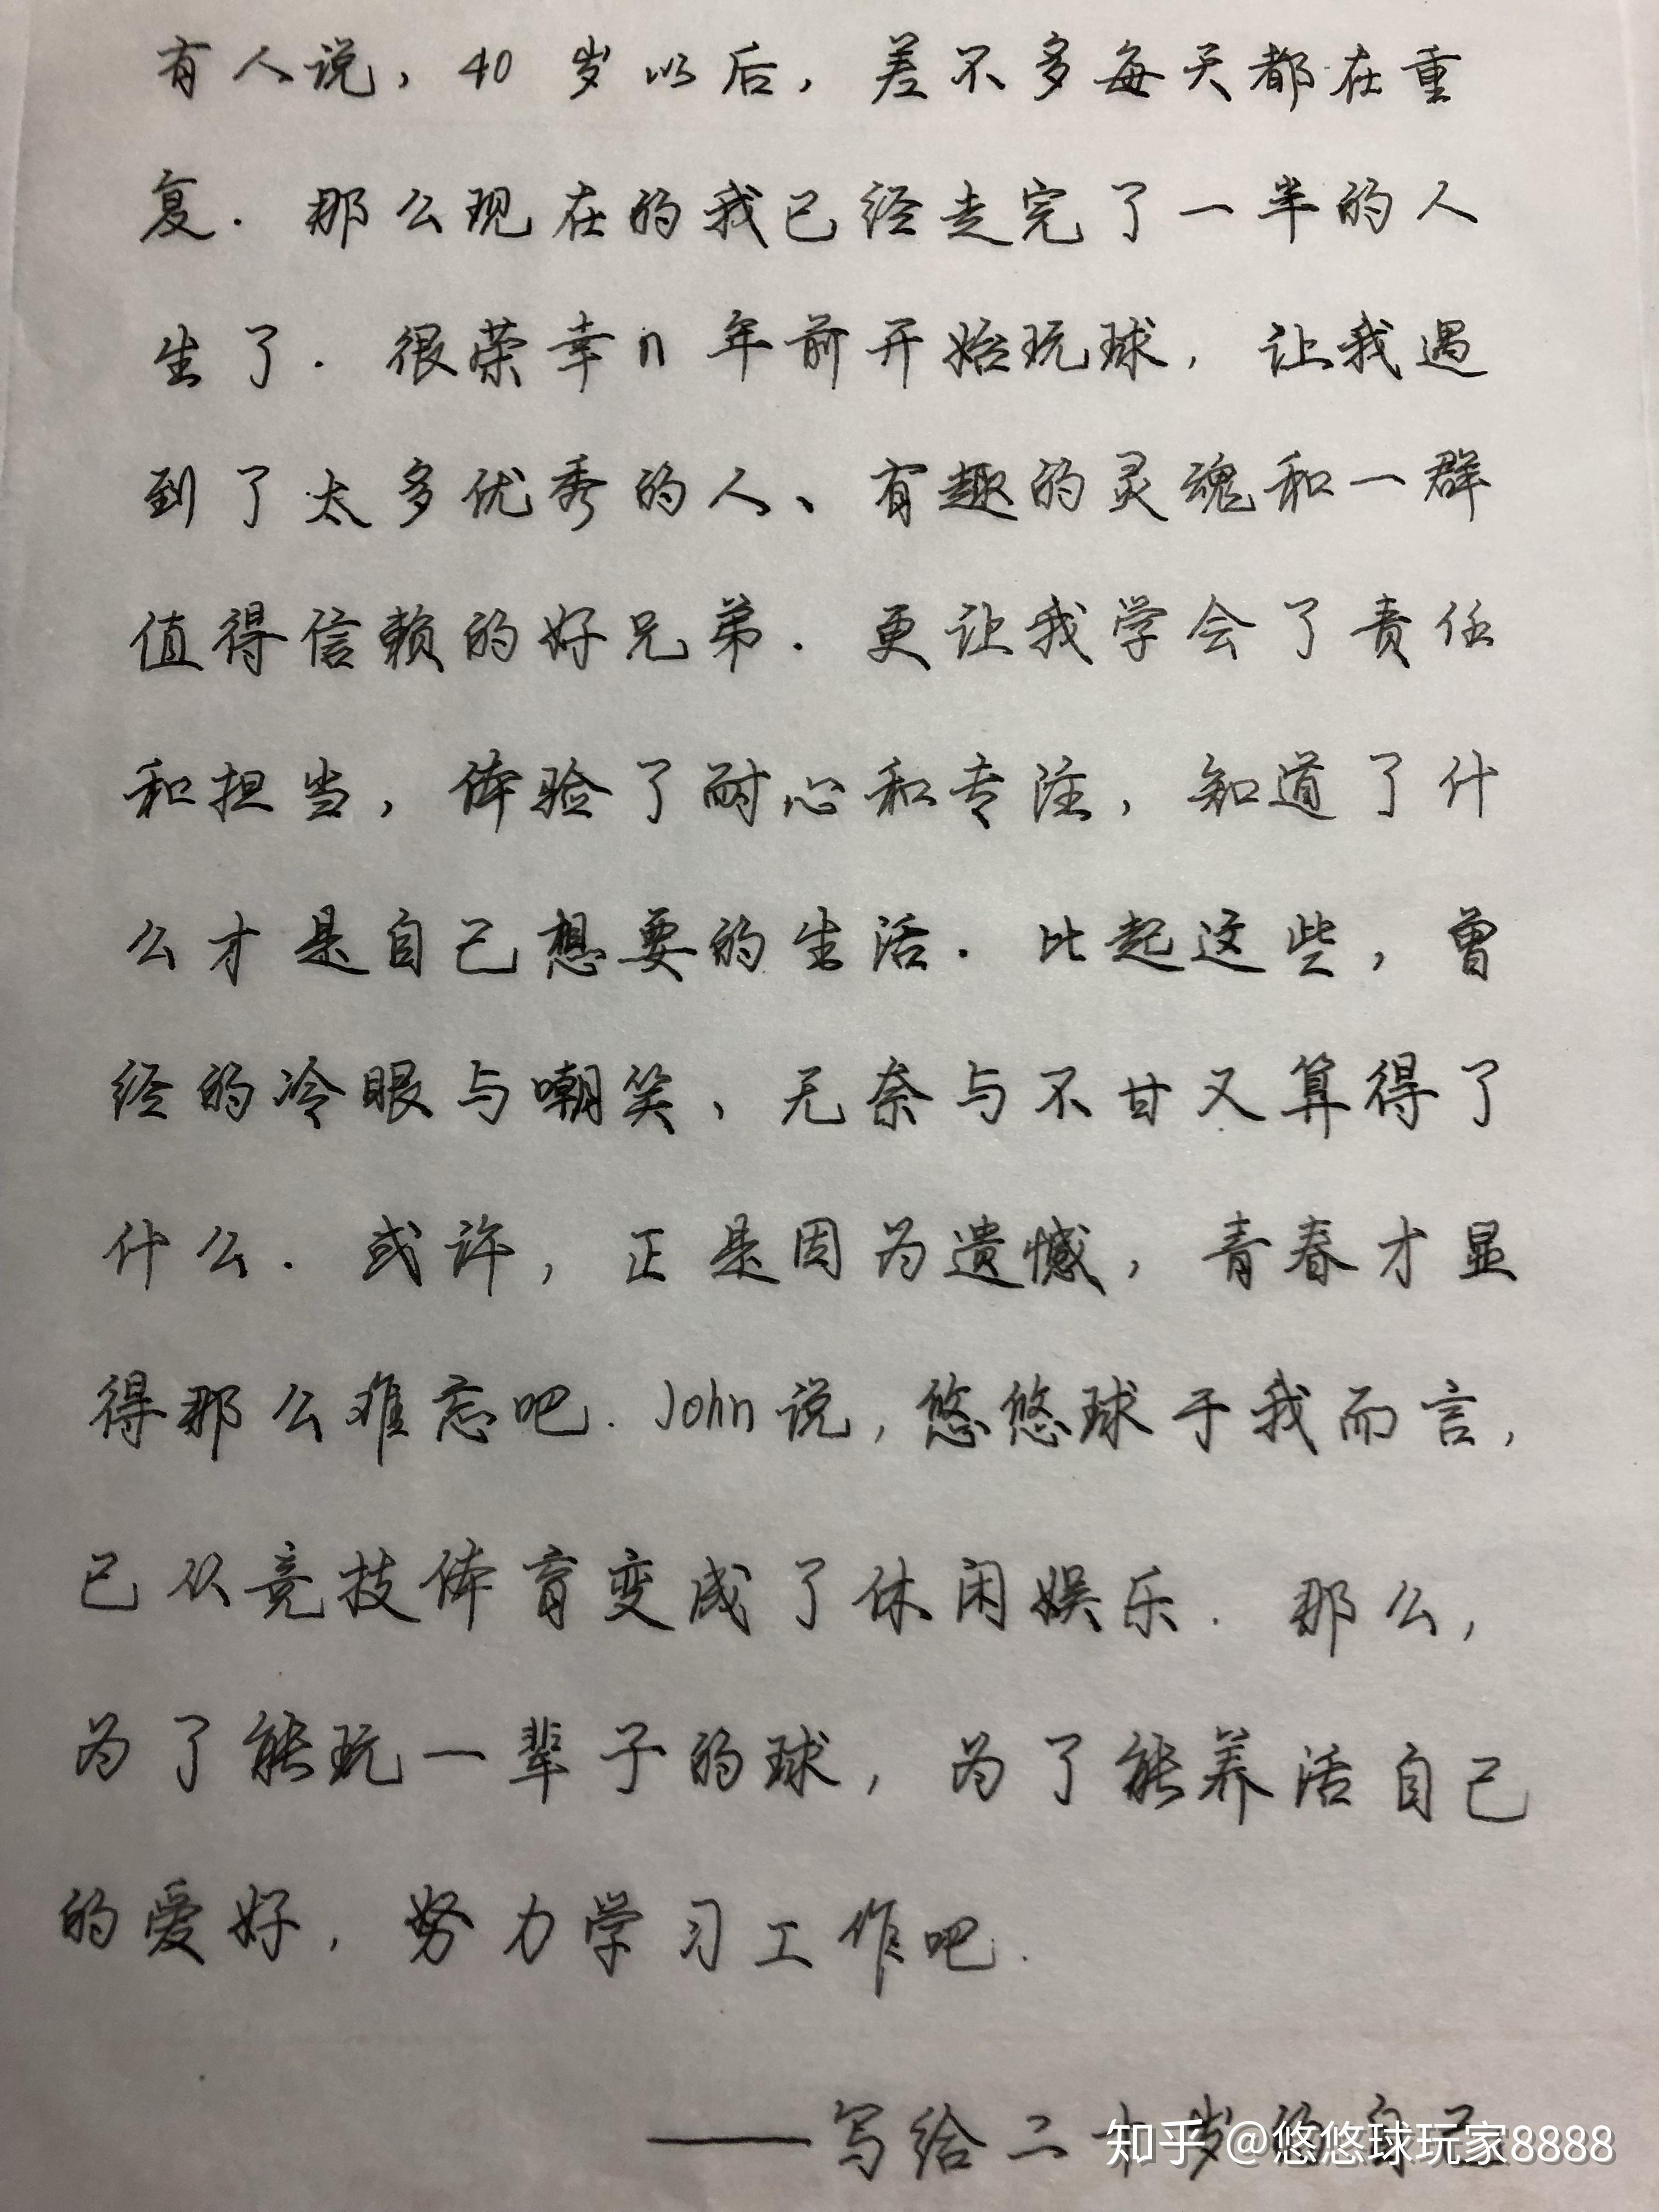 有人说，40岁以后，差不多每天都在重
复．那么现在的我已经走完了一半的人
生了．很荣幸n年前开始玩球，让我遇
到了太多优秀的人、有趣的灵魂和一群
值得信赖的好兄弟．更让我学会了责任
和担当，体验了耐心和专注，知道了什
么才是自己想要的生活．比起这些，曾
经的冷眼与嘲笑、无奈与不甘又算得了
什么．或许，正是因为遗憾，青春才显
得那么难忘吧．John说，悠悠球于我而言，
已从竞技体育变成了休闲娱乐．那么，
为了能玩一辈子的球，为了能养活自己
的爱好，努力学习工作吧．
——写给二十岁的自己
知乎 @悠悠球玩家8888